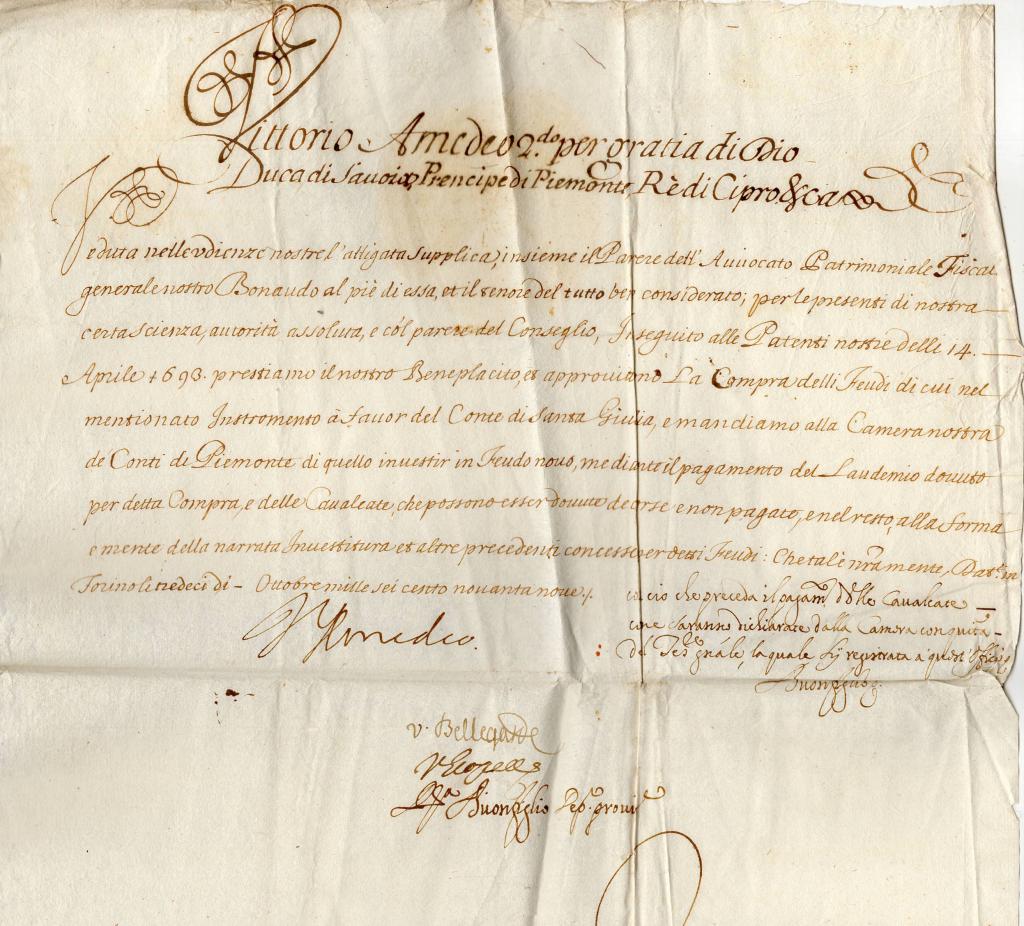 Vittorio Amedeo 2.do per gratia di Dio
Duca di Savoia, Prencipe di Piemonte, Rè di Cipro &c.a
Veduta nell'vdienze nostre l'alligata supplica, insieme il Parere dell'Auuocato Patrimoniale Fiscal
generale nostro Bonaudo al piè di essa, et il tenore del tutto ben considerato; per le presenti di nostra
certa scienza, autorità assoluta, e còl parere del Conseglio, Inseguito alle Patenti nostre delli 14.
Aprile 1693. prestiamo il nostro Beneplacito, et approuiamo La Compra delli Feudi di cui nel
mentionato Instromento à fauor del Conte di Santa Giulia, e mandiamo alla Camera nostra
de Conti di Piemonte di quello investir in Feudo nouo, mediante il pagamento del Laudemio douuto
per detta Compra, e delle Caualcate, che possono esser douute decorse e non pagate, e nel resto, alla forma
e mente della narrata Inuestitura et altre precedenti concesse per detti Feudi: Che tal'è n̄ra mente, Dat. in
Torino li tredeci di Ottobre mille sei cento nouanta noue /.
V Amedeo.
co ciò che preceda il pagam.to delle Caualcate
come saranno dichiarate dalla Camera con quita.
del Tes.re gn̄ale, la quale sij registrata a quest'officio
Buonfiglio
v. Bellegarde
Buonfiglio